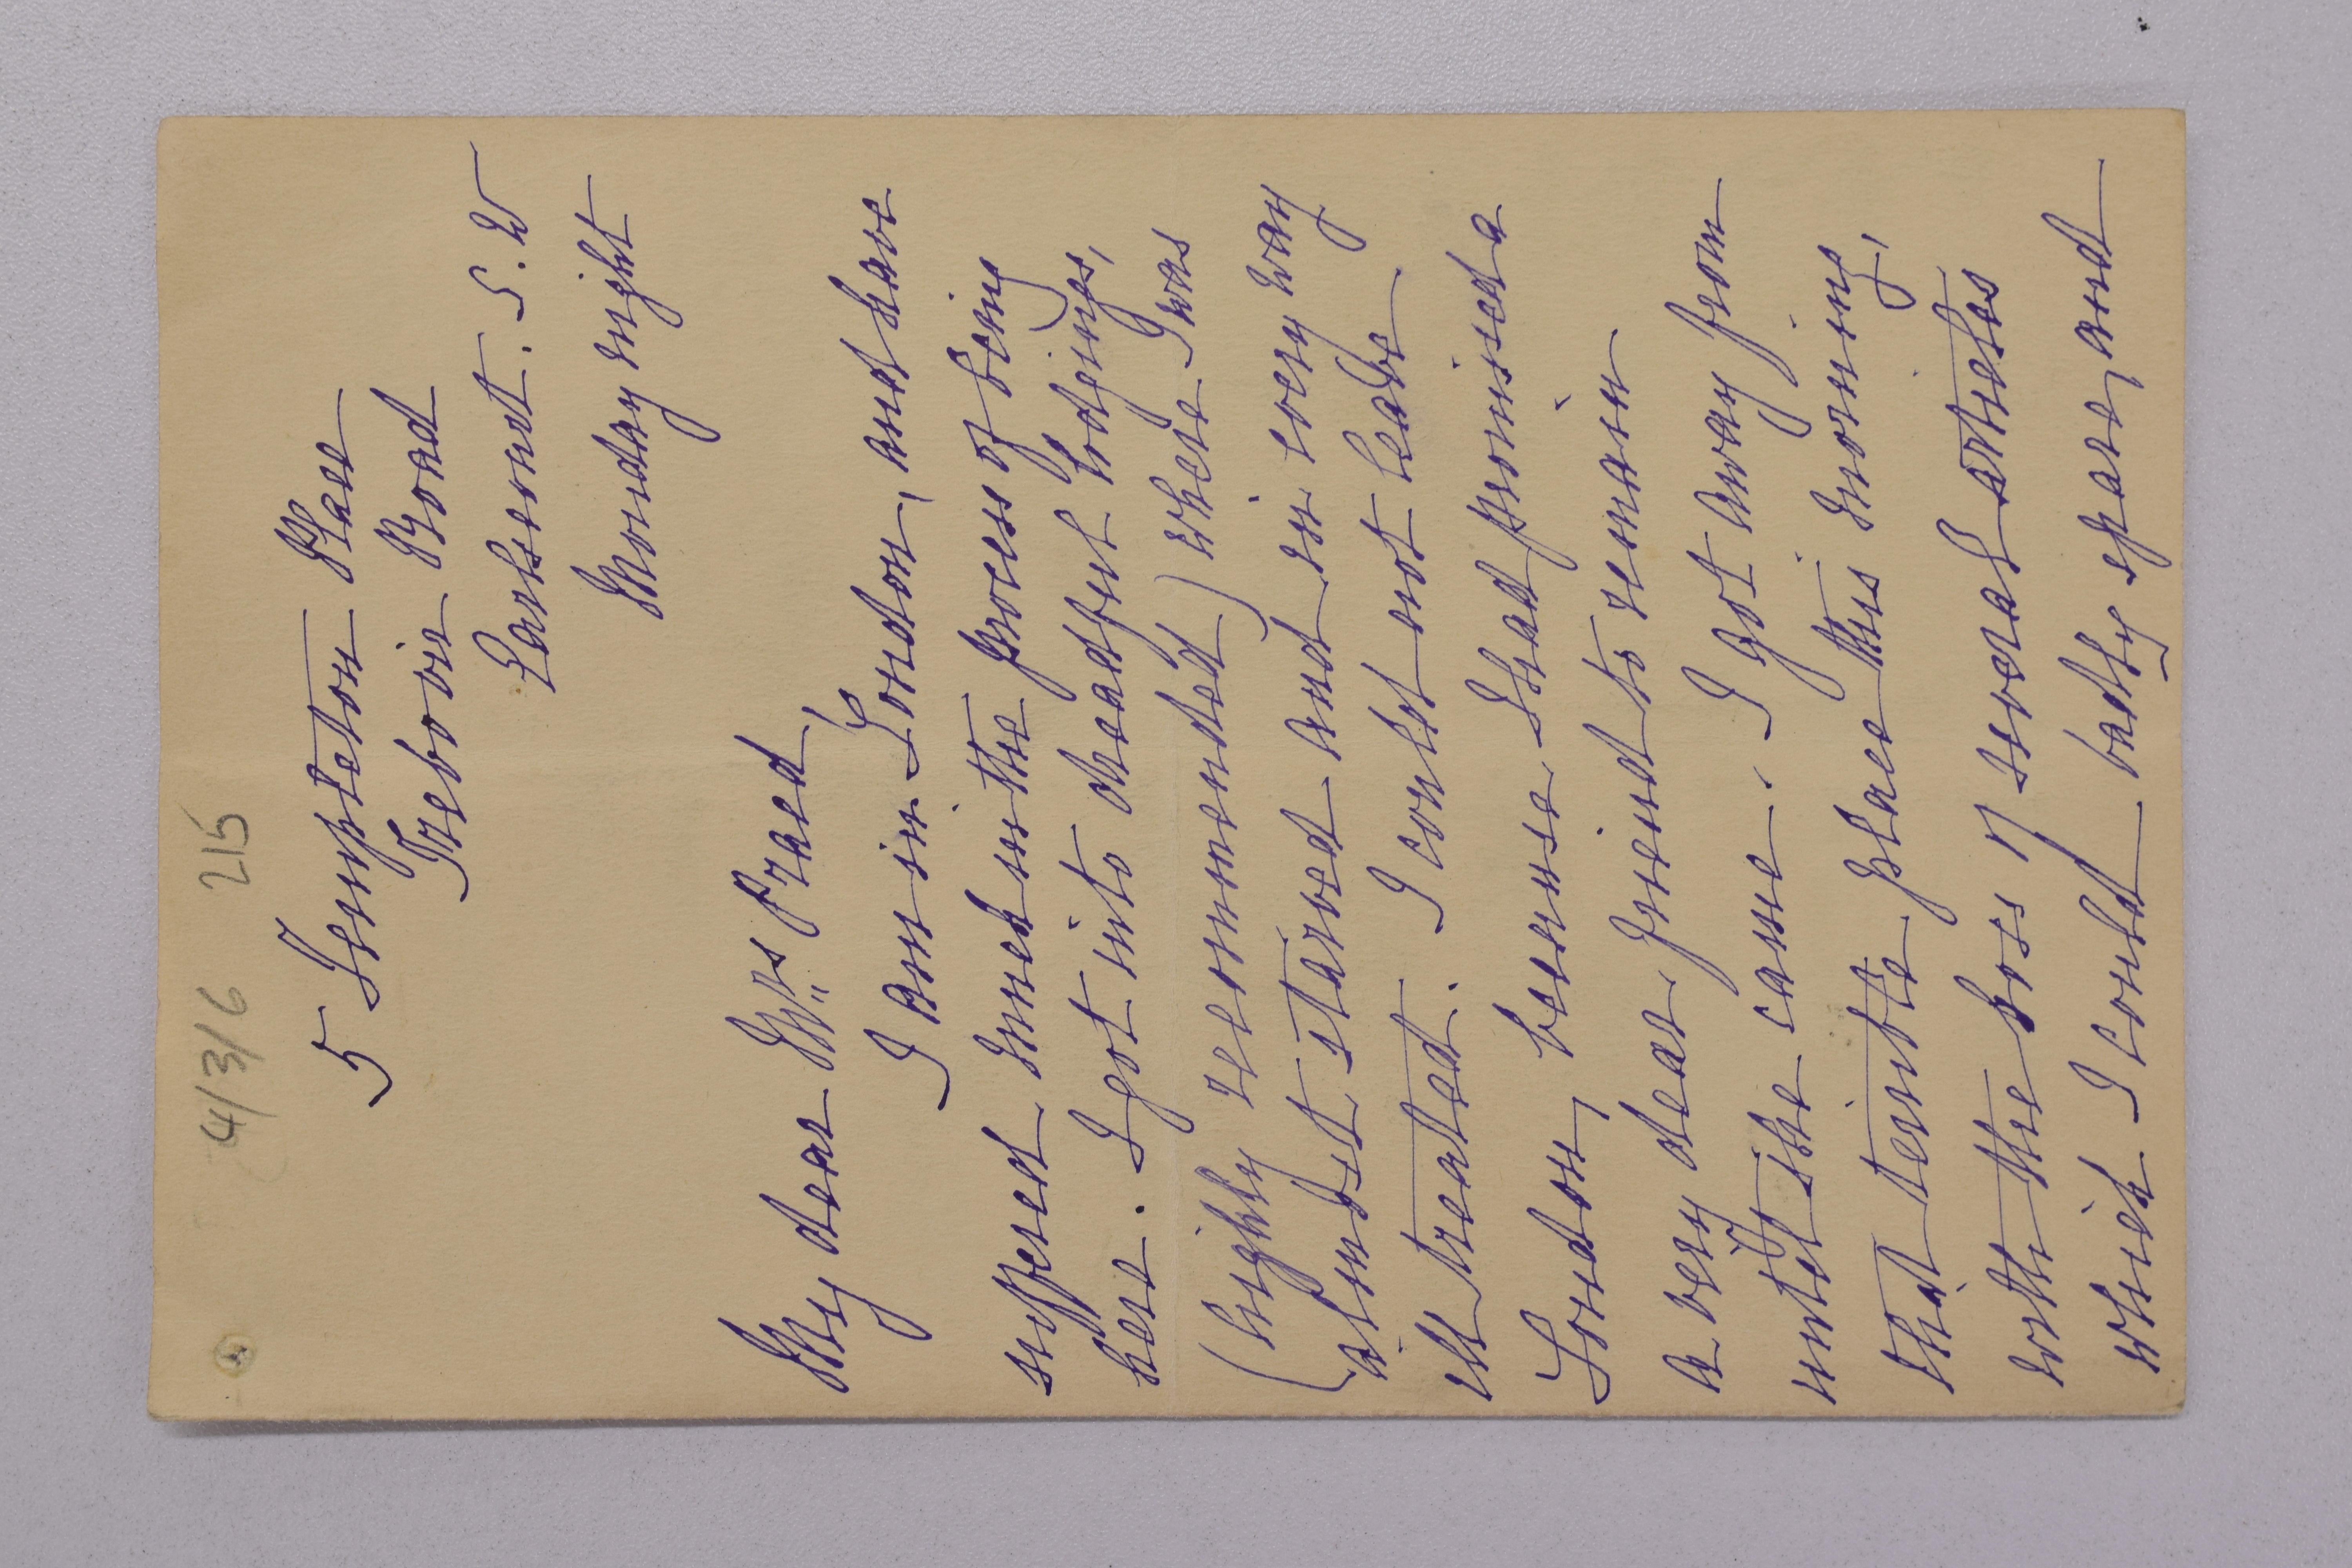 4/3/6 215
5 Templeton Place
Trebovir Road
Earlscourt. S.W
Monday night
My dear Mrs Praed,
I am in London, and have
suffered much in the process of being
here. I got into dreadful lodgings,
(highly recommended) where I was
almost starved and in every way
ill treated. I could not leave
London, because I had promised a
a very dear friend to remain
until she came. I got away from
that terrible place this morning,
with the loss of several articles
which I could badly spare, and